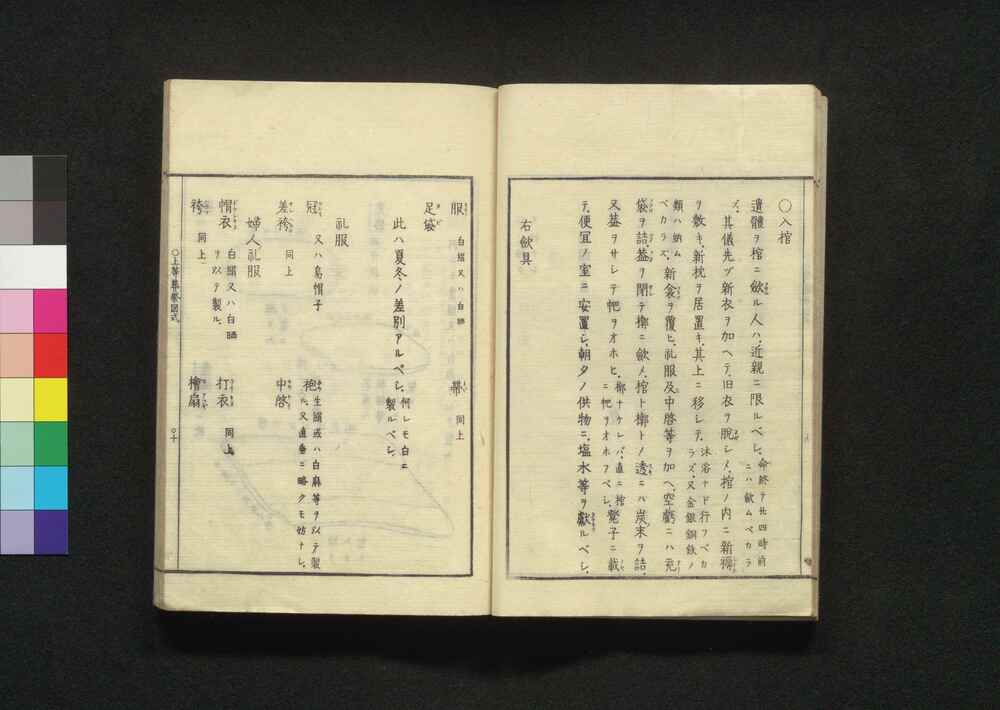 〇入棺
遺體ヲ棺ニ斂ル人ハ、近親ニ限ルベシ、命終ヲ廿四時前ニハ斂ムベカラズ、
其儀先ヅ新衣ヲ加ヘテ、旧衣ヲ脱シメ、棺ノ内ニ新褥
ヲ敷キ、新枕ヲ居置キ、其上ニ移シテ、沐浴ナド行フベカラズ、又金銀銅鉄ノ
類ハ納ムベカラズ、新衾ヲ覆ヒ、礼服及中啓等ヲ加ヘ、空虧ニハ充
袋ヲ詰、蓋ヲ閉テ槨ニ斂メ、棺ト槨トノ透ニハ炭末ヲ詰、
又蓋ヲサシテ帊ヲオホヒ、槨ナケレバ、直ニ棺ニ帊ヲオホフベシ、凳子ニ載
テ、便冝ノ室ニ安置シ、朝夕ノ供物ニ、塩水等ヲ献ルベシ、
右斂具
服 白絹又ハ白晒 帯 同上
足袋
此ハ夏冬ノ差別アルベシ、何レモ白ニ製ルベシ、
礼服
冠 又ハ烏帽子 袍 生絹或ハ白麻等ヲ以テ製ル、又直垂ニ略クモ妨ナシ、
差袴 同上 中啓
婦人礼服
帽衣 白絹又ハ白晒ヲ以テ製ル、 打衣 同上
袴 同上 檜扇
〇上等葬祭図式
〇十